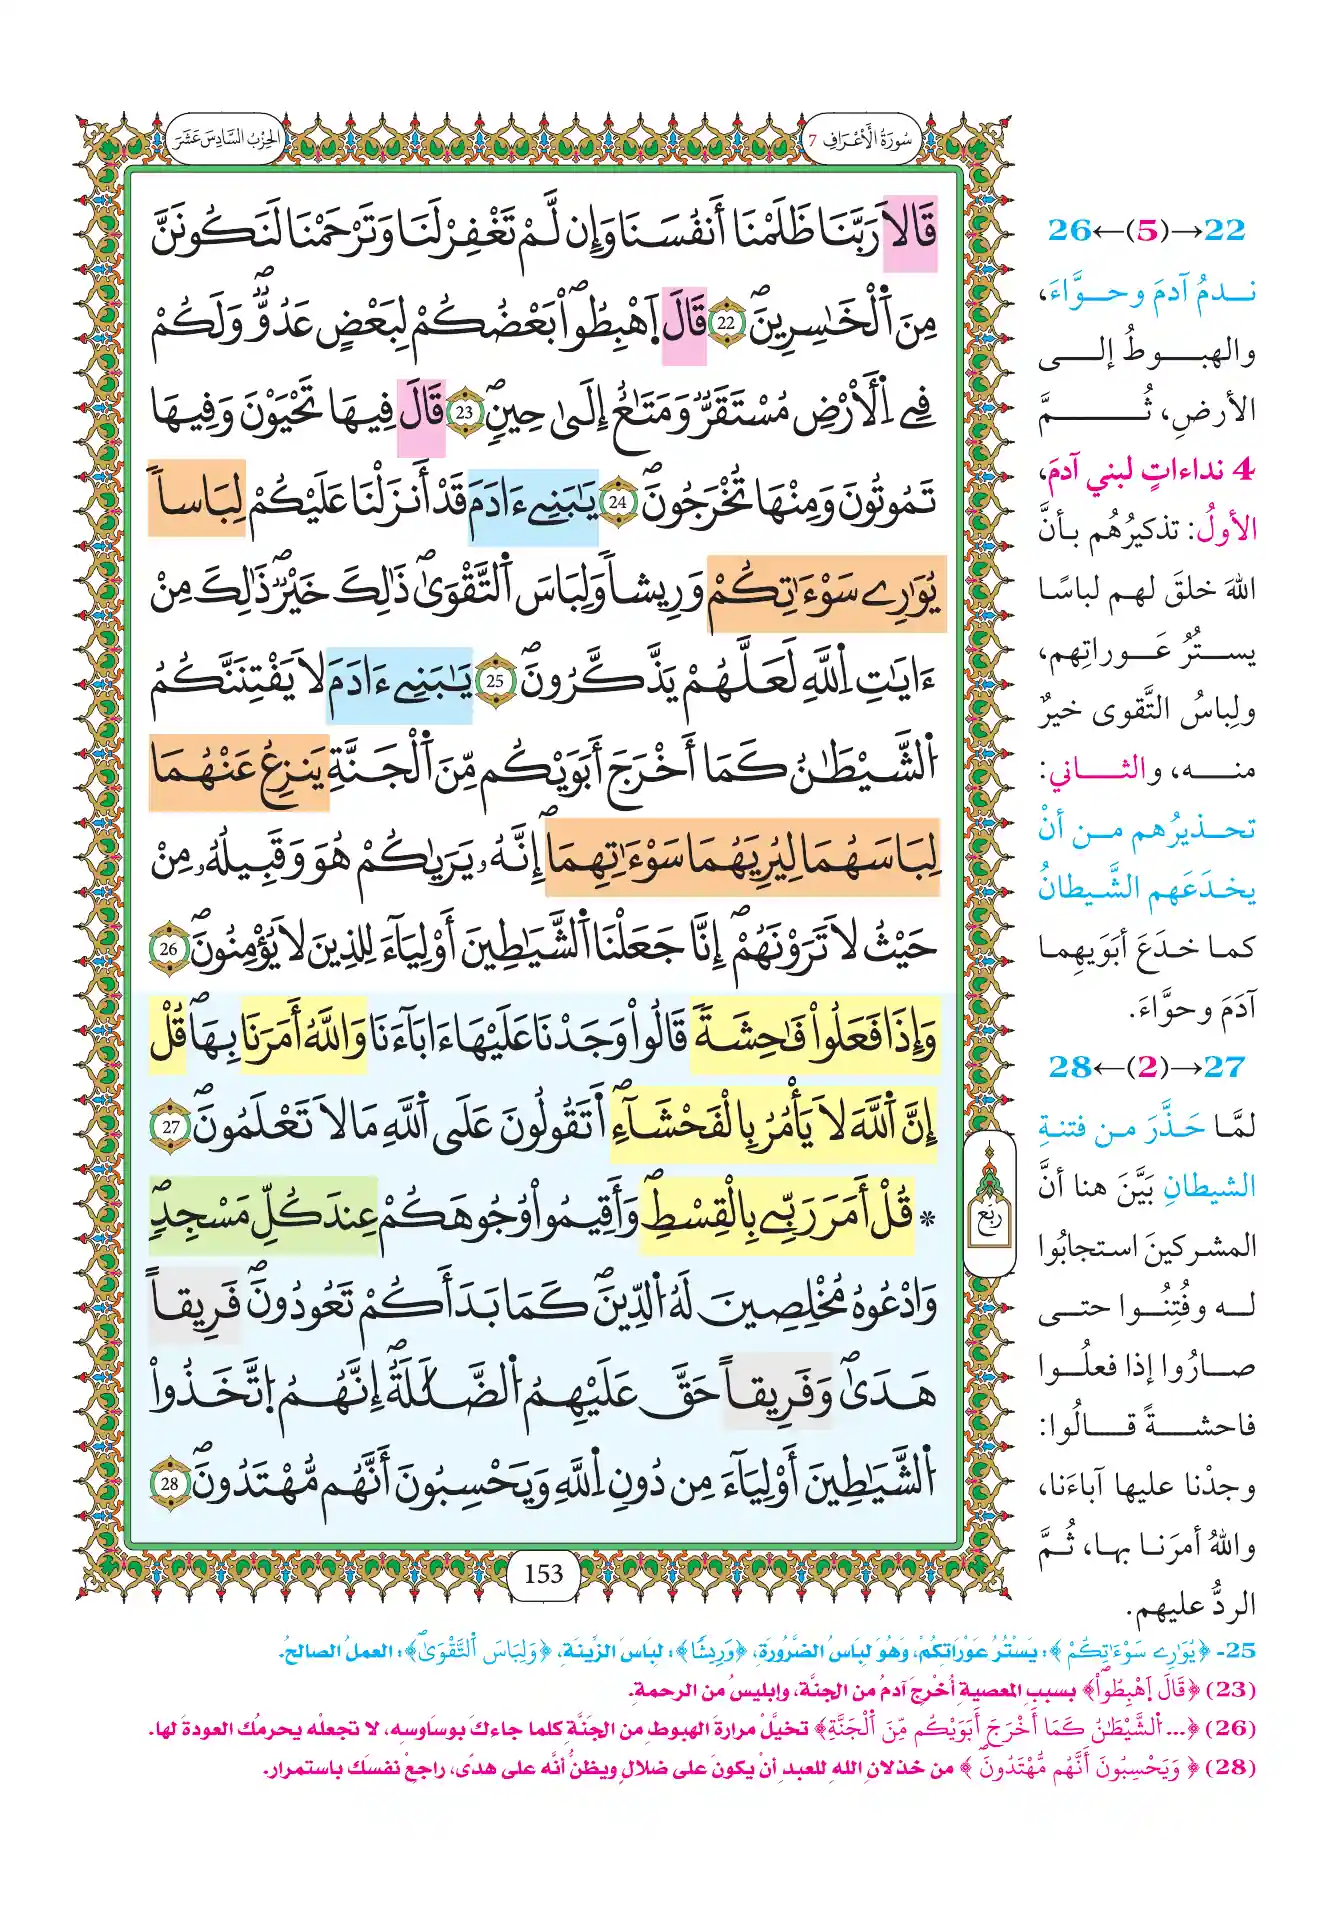 سُورَةُ الْأَعْرَافِ 7
الحِزْبُ السَّادِسَ عَشَرَ
قَالَا رَبَّنَا ظَلَمْنَا أَنفُسَنَا وَإِن لَّمْ تَغْفِرْ لَنَا وَتَرْحَمْنَا لَنَكُونَنَّ
مِنَ اَ۬لْخَٰسِرِينَۖ 22 قَالَ اَ۪هْبِطُواْ بَعْضُكُمْ لِبَعْضٍ عَدُوّٞۖ وَلَكُمْ
فِے اِ۬لَارْضِ مُسْتَقَرّٞ وَمَتَٰعٌ إِلَىٰ حِينٖۖ 23 قَالَ فِيهَا تَحْيَوْنَ وَفِيهَا
تَمُوتُونَ وَمِنْهَا تُخْرَجُونَۖ 24 يَٰبَنِےٓ ءَادَمَ قَدْ أَنزَلْنَا عَلَيْكُمْ لِبَاساٗ
يُوَٰرِے سَوْءَٰتِكُمْ وَرِيشاٗ وَلِبَاسَ اَ۬لتَّقْوَىٰۖ ذَٰلِكَ خَيْرٞۖ ذَٰلِكَ مِنْ
ءَايَٰتِ اِ۬للَّهِ لَعَلَّهُمْ يَذَّكَّرُونَۖ 25 يَٰبَنِےٓ ءَادَمَ لَا يَفْتِنَنَّكُمُ
اُ۬لشَّيْطَٰنُ كَمَا أَخْرَجَ أَبَوَيْكُم مِّنَ اَ۬لْجَنَّةِ يَنزِعُ عَنْهُمَا
لِبَاسَهُمَا لِيُرِيَهُمَا سَوْءَٰتِهِمَاۖ إِنَّهُۥ يَرَىٰكُمْ هُوَ وَقَبِيلُهُۥ مِنْ
حَيْثُ لَا تَرَوْنَهُمْۖ إِنَّا جَعَلْنَا اَ۬لشَّيَٰطِينَ أَوْلِيَآءَ لِلذِينَ لَا يُؤْمِنُونَۖ 26
وَإِذَا فَعَلُواْ فَٰحِشَةٗ قَالُواْ وَجَدْنَا عَلَيْهَا ءَابَآءَنَا وَاللَّهُ أَمَرَنَا بِهَاۖ قُلْ
إِنَّ اَ۬للَّهَ لَا يَأْمُرُ بِالْفَحْشَآءِۖ أَتَقُولُونَ عَلَى اَ۬للَّهِ مَا لَا تَعْلَمُونَۖ 27
* قُلْ أَمَرَ رَبِّے بِالْقِسْطِۖ وَأَقِيمُواْ وُجُوهَكُمْ عِندَ كُلِّ مَسْجِدٖۖ
وَادْعُوهُ مُخْلِصِينَ لَهُ اُ۬لدِّينَۖ كَمَا بَدَأَكُمْ تَعُودُونَۖ فَرِيقاً
هَدَىٰۖ وَفَرِيقاً حَقَّ عَلَيْهِمُ اُ۬لضَّلَٰلَةُۖ إِنَّهُمُ اُ۪تَّخَذُواْ
اُ۬لشَّيَٰطِينَ أَوْلِيَآءَ مِن دُونِ اِ۬للَّهِ وَيَحْسِبُونَ أَنَّهُم مُّهْتَدُونَۖ 28
ربع
153
22→(5)←26
ندمُ آدمَ وحوَّاءَ،
والهبوطُ إلى
الأرضِ، ثُمَّ
4 نداءاتٍ لبني آدمَ،
الأولُ: تذكيرُهُم بأنَّ
اللهَ خلقَ لهم لباسًا
يسترُ عَوراتِهم،
ولِباسُ التَّقوى خيرٌ
منه، والثاني:
تحذيرُهم من أنْ
يخدَعَهم الشَّيطانُ
كما خدَعَ أبَوَيهِما
آدَمَ وحوَّاءَ.
27→(2)←28
لمَّا حَذَّرَ من فتنةِ
الشيطانِ بَيَّنَ هنا أنَّ
المشركينَ استجابُوا
له وفُتِنُوا حتى
صارُوا إذا فعلُوا
فاحشةً قالُوا:
وجدْنا عليها آباءَنا،
واللهُ أمرَنا بها، ثُمَّ
الردُّ عليهم.
25- ﴿يُوَٰرِے سَوْءَٰتِكُمْ﴾: يَسْتُرُ عَوْرَاتِكُمْ، وَهُوَ لِبَاسُ الضَّرُورَةِ، ﴿وَرِيشًا﴾: لِبَاسَ الزِّينَةِ، ﴿وَلِبَاسَ اَ۬لتَّقْوَىٰ﴾: العملُ الصالحُ.
(23) ﴿قَالَ اَ۪هْبِطُواْ﴾ بسببِ المعصيةِ أُخْرِجَ آدمُ من الجنَّة، وإبليسُ من الرحمةِ.
(26) ﴿... اُ۬لشَّيْطَٰنُ كَمَا أَخْرَجَ أَبَوَيْكُم مِّنَ اَ۬لْجَنَّةِ﴾ تخيَّلْ مرارةَ الهبوطِ من الجَنَّةِ كلما جاءكَ بوساوسِه، لا تجعلْه يحرمُك العودةَ لها.
(28) ﴿وَيَحْسِبُونَ أَنَّهُم مُّهْتَدُونَ﴾ من خذلانِ اللهِ للعبدِ أنْ يكونَ على ضلالٍ ويظنُّ أنَّه على هدًى، راجعْ نفسَك باستمرارٍ.